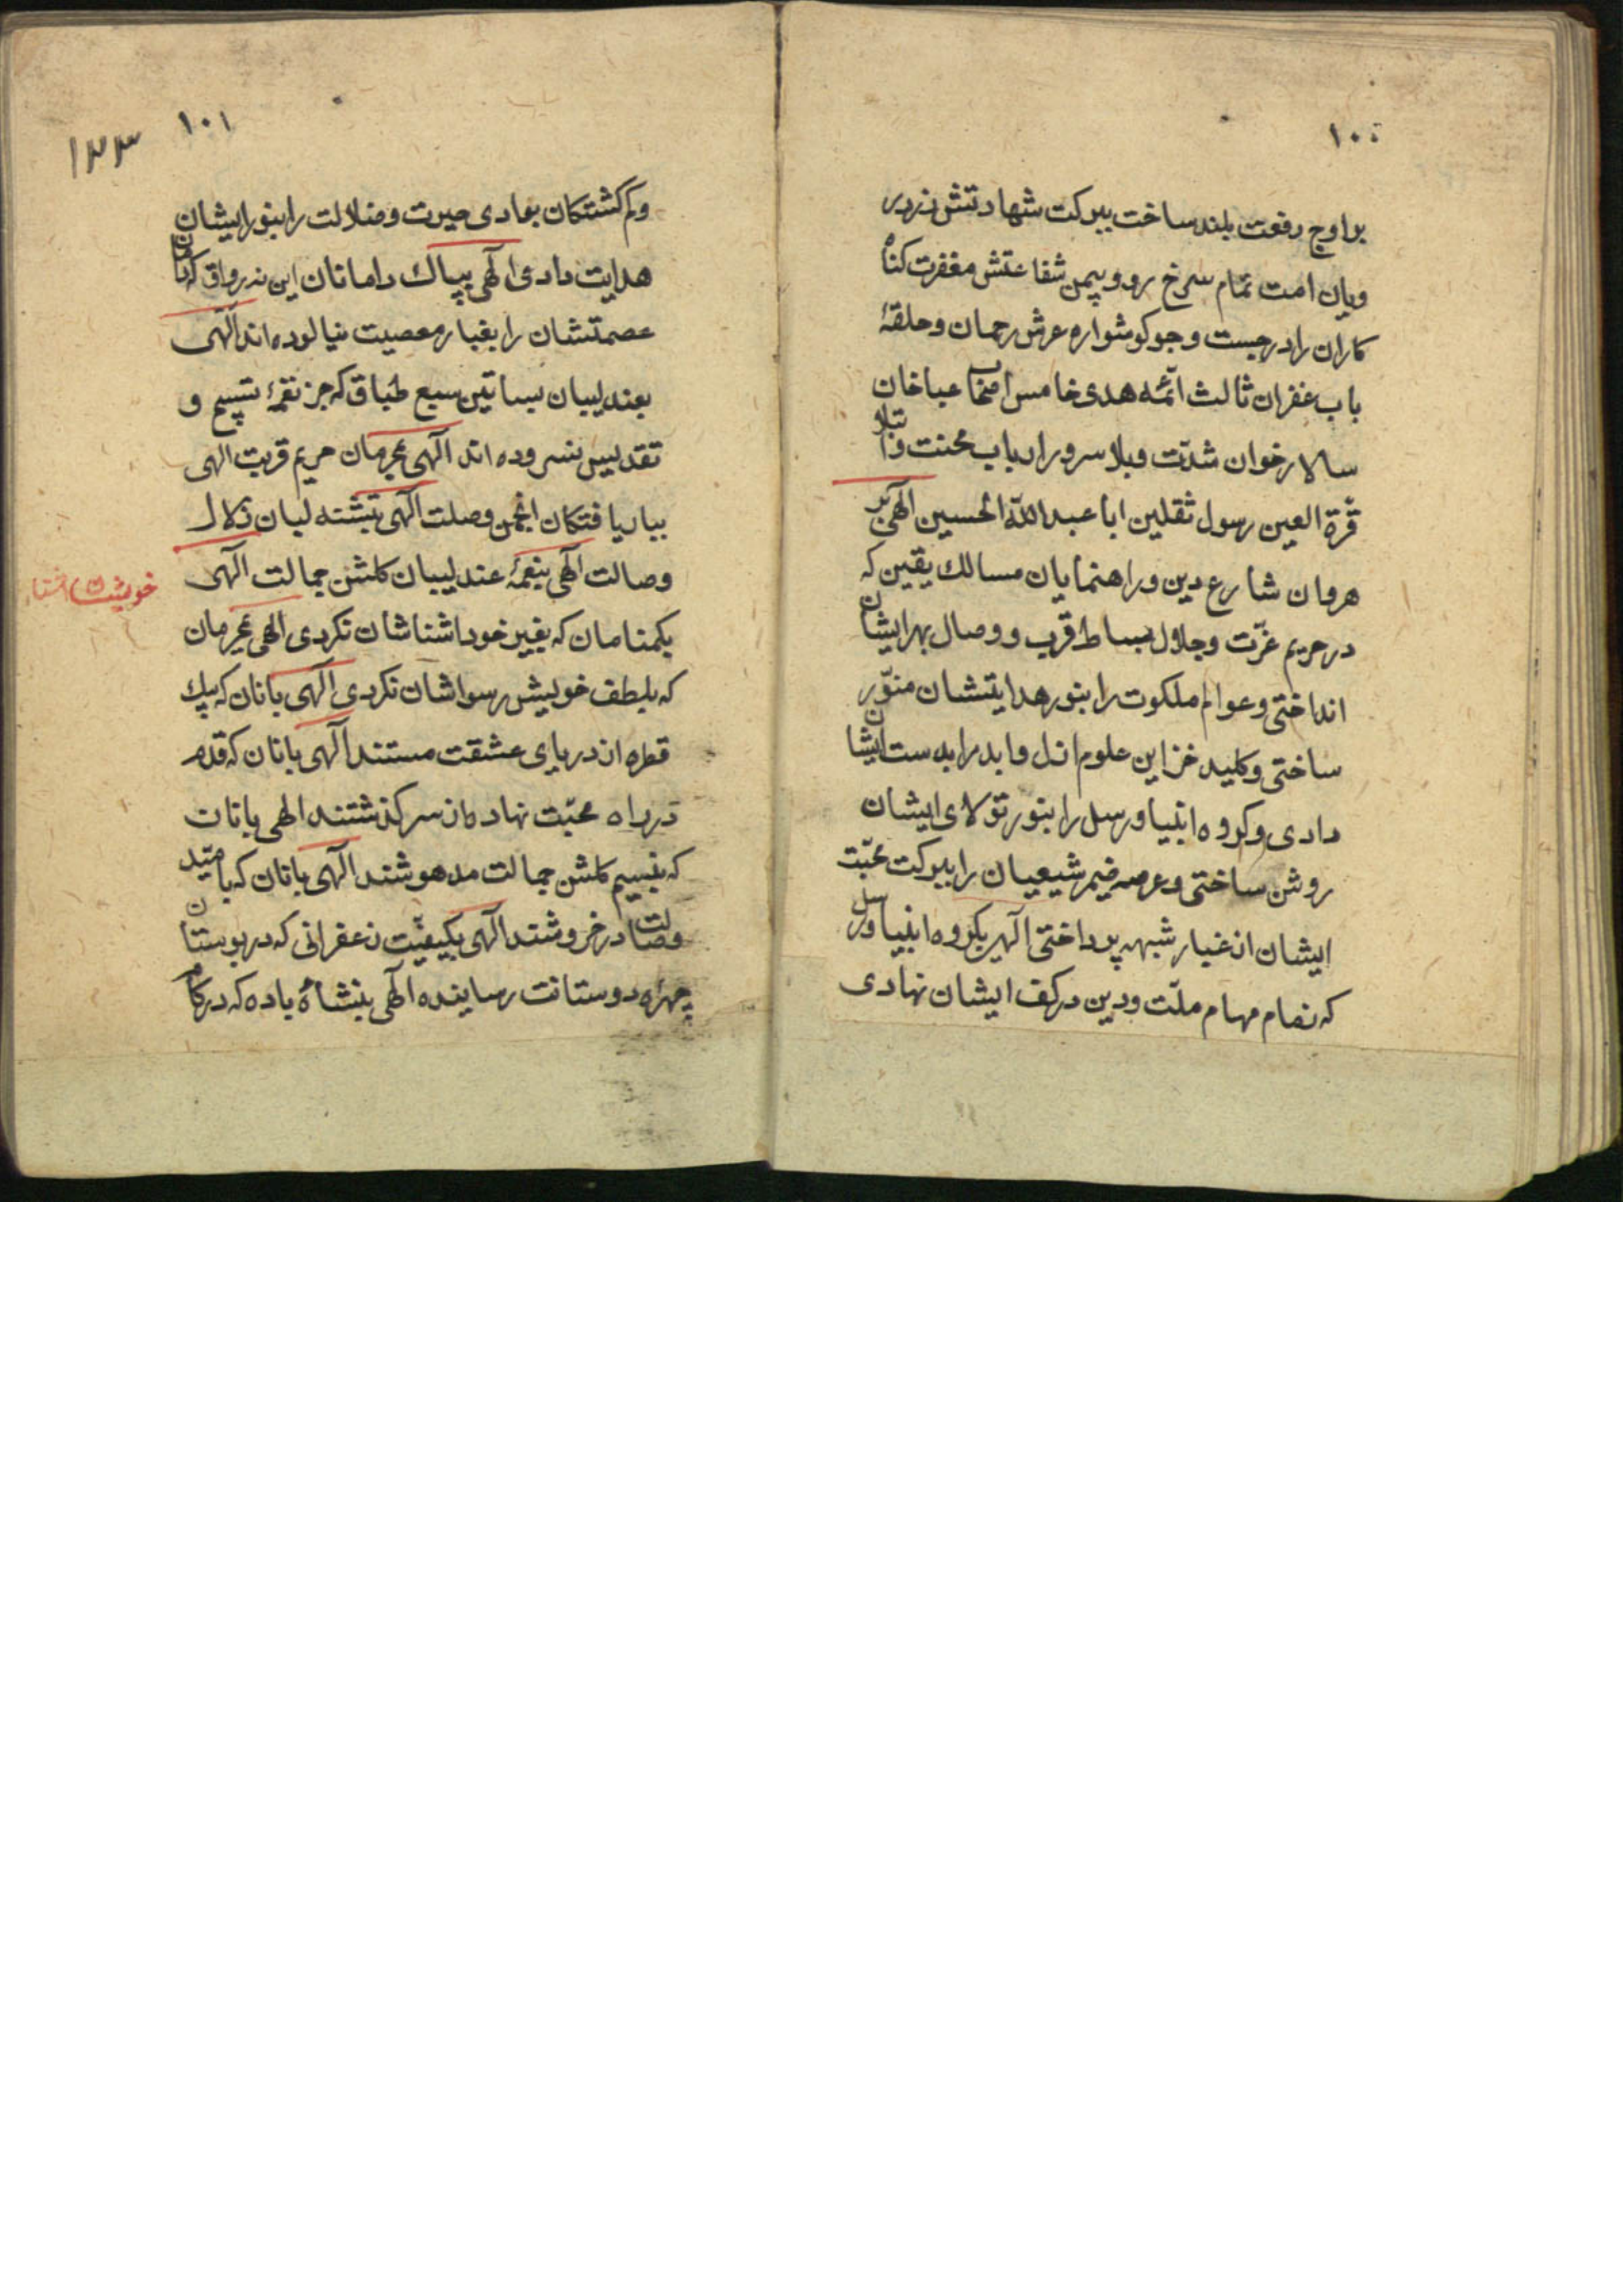 ۱۰۰
براوج رفعت بلند ساخت ببرکت شهادتش زردر
ویان امت تمام سرخ رو و بیمن شفاعتش مغفرت کناه
کاران را درجست وجو کوشواره عرش رحمان وحلقهٔ
باب غفران ثالث ائمّه هدی خامس اصحاب عباخان
سالار خوان شدّت وبلا سرور ارباب محنت وابتلا
قرّة العین رسول ثقلین ابا عبدالله الحسین الهی بر
هروان شارع دین و راهنمایان مسالك یقین که
در حریم عزّت وجلال بساط قرب و وصال بهر ایشان
انداختی وعوالم ملکوت را بنور هدایتشان منوّر
ساختی وکلید خزاین علوم ازل وابد را بدست ایشان
دادی وکروه انبیا ورسل را بنور تولای ایشان
روشن ساختی وعرصه ضمیر شیعیان را ببرکت محبّت
ایشان از غبار شبهه پرداختی الهی بکروه انبیا ورسل
که زمام مهام ملّت ودین در کف ایشان نهادی
۱۰۱
۱۲۳
وکم کشتکان بوادی حیرت وضلالت را بنور ایشان
هدایت دادی الهی بپاك دامانان این نه رواق که دامان
عصمتشان را بغبار معصیت نیالوده اند الهی
بعندلیبان بساتین سبع طباق که جز نغمهٔ تسبیح و
تقدیس نسروده اند الهی بمحرمان حریم قربت الهی
ببار یافتکان انجمن وصلت الهی بتشنه لبان زلال
وصالت الهی بنغمهٔ عندلیبان کلشن جمالت الهی
خویشت
بکمنامان که بغیر خود اشناشان نکردی الهی بمجرمان
که بلطف خویش رسواشان نکردی الهی بانان که بیك
قطره از دریای عشقت مستند الهی بانان که قدم
در راه محبّت نهاده از سر کذشتند الهی بانان
که بنسیم کلشن جمالت مدهوشند الهی بانان که بامّید
وصالت در خروشند الهی بکیفیّت زعفرانی که در بوستان
چهرهٔ دوستانت رسانیده الهی بنشاهٔ باده که در کام